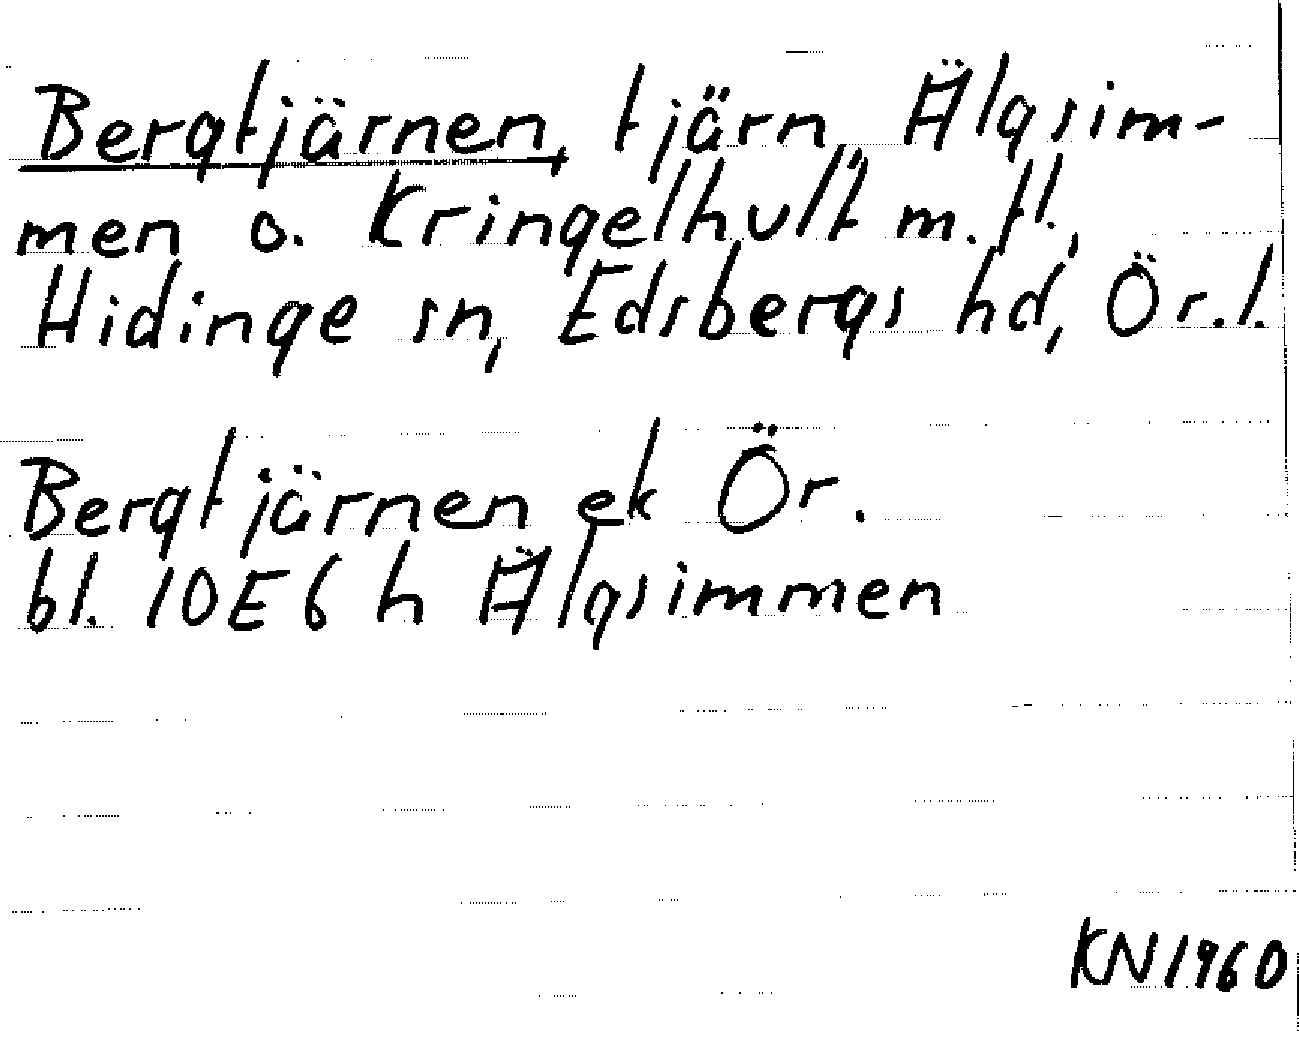 Bergtjärnen, tjärn, Älgsim-
men o. Kringelhult m.fl.,
Hidinge sn, Edsbergs hd, Ör.l.
Bergtjärnen ek Ör.
bl. 10E6h Älgsimmen
KN1960